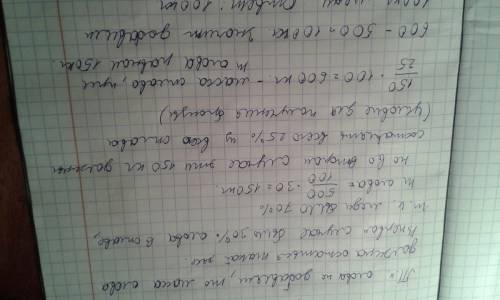 Т.к. олово не добавляли, то масса олова
должна остаться такой же.
В первом случае было 30% олова в сплаве,
т.к. меди было 70%
m олова = 500/100 · 30 = 150 кг.
но во втором случае эти 150 кг должны
составлять всего 25% из всего сплава
(условие для получения бронзы)
150/25 · 100 = 600 кг - масса сплава, при
m олова равной 150 кг.
600 - 500 = 100 кг значит добавили
100 кг меди Ответ: 100 кг